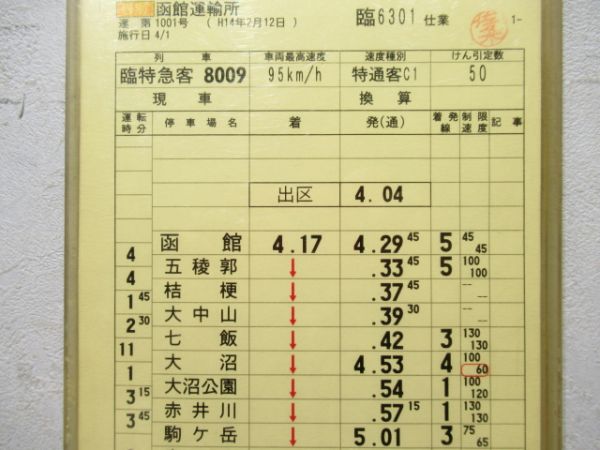 函館運輸所
運第1001号 (H14年2月12日) 臨6301 仕業 1-
施行日 4/1
列車 車両最高速度 速度種別 けん引定数
臨特急客 8009 95km/h 特通客C1 50
現車 換算
運転時分 停車場名 着 発(通) 着発線 制限速度 記事
出区 4.04
函館 4.17 4.29 45 5 45 45
4
五稜郭 ↓ .33 45 5 100 100
4
桔梗 ↓ .37 45 -- --
1 45
大中山 ↓ .39 30 -- --
2 30
七飯 ↓ .42 3 130 130
11
大沼 ↓ 4.53 4 100 60
1
大沼公園 ↓ .54 1 100 120
3 15
赤井川 ↓ .57 15 1 130 130
3 45
駒ケ岳 ↓ 5.01 3 75 65